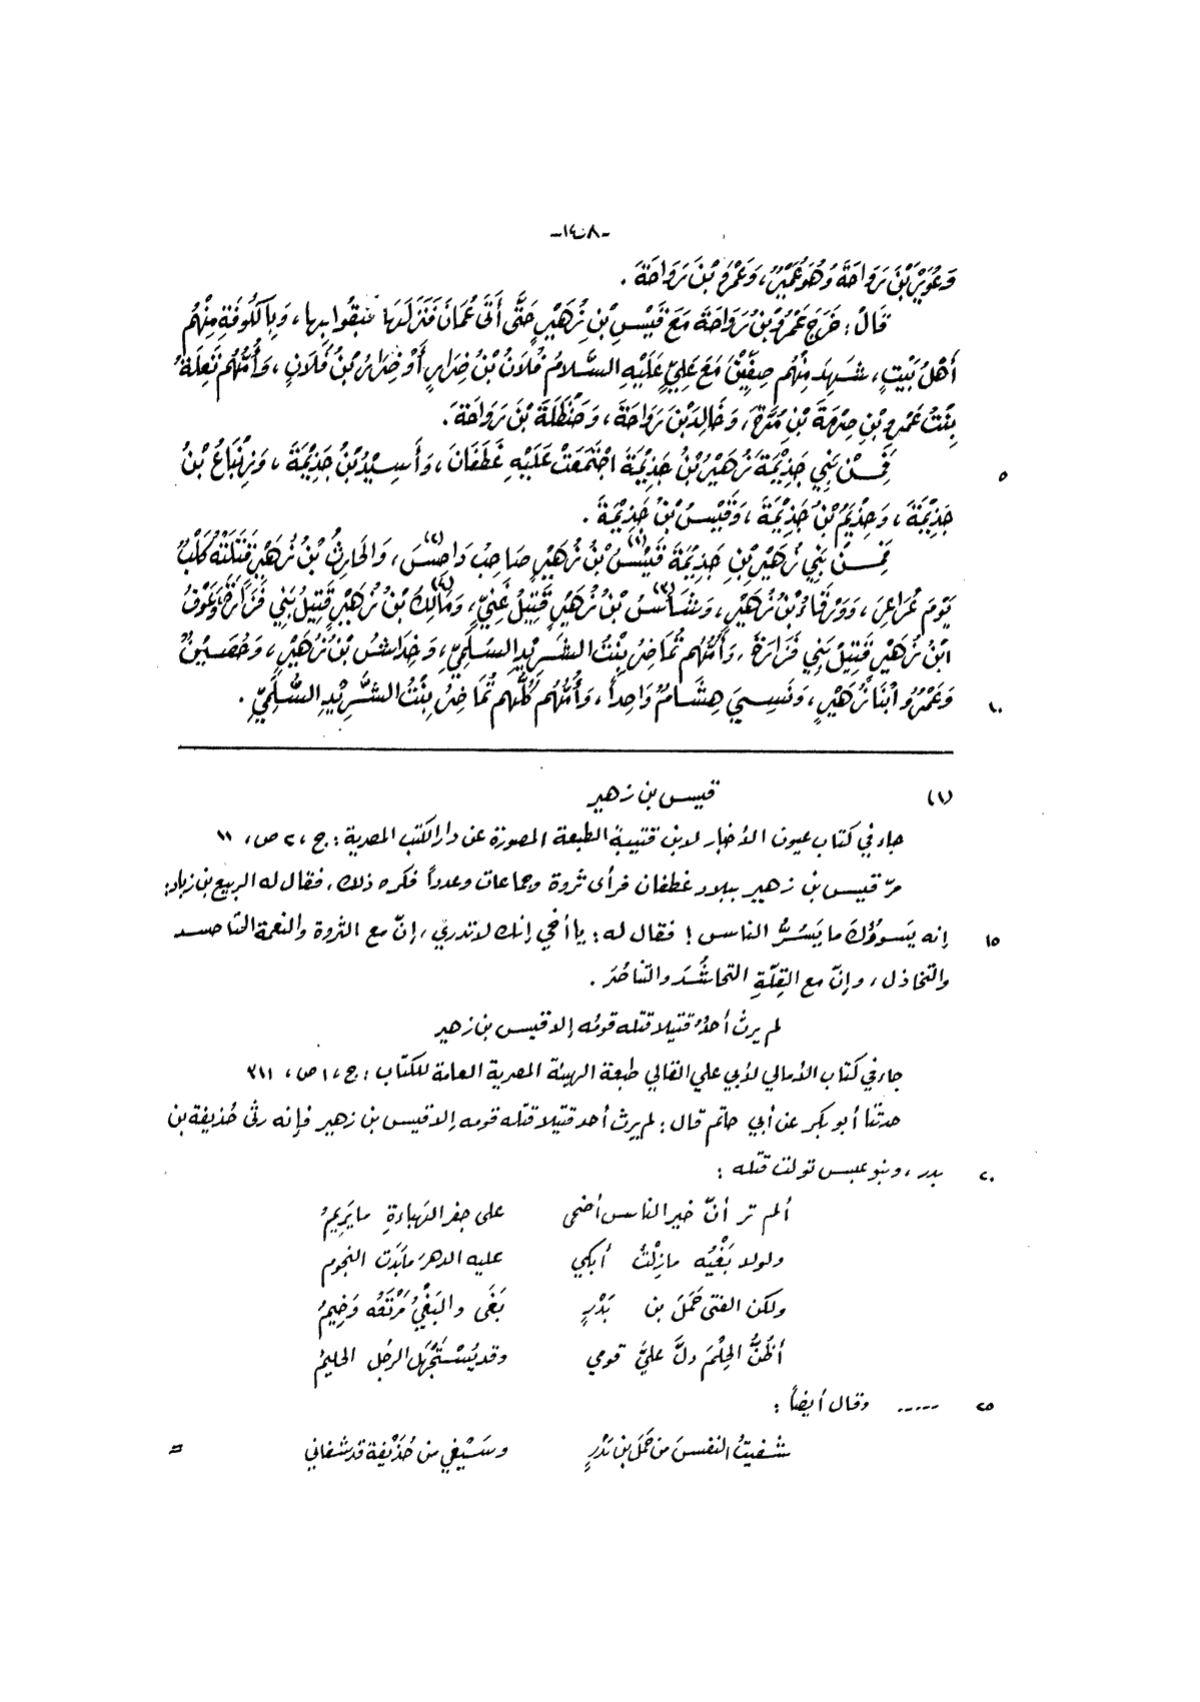 -١٤٠٨-
وَعُوَيْرَ بْنَ رَوَاحَةَ وَهُوَ عُمَيْرٌ، وَعَمْرَو بْنَ رَوَاحَةَ .
قَالَ: خَرَجَ عَمْرُو بْنُ رَوَاحَةَ مَعَ قَيْسِ بْنِ زُهَيْرٍ حَتَّى أَتَى عُمَانَ فَنَزَلَهَا فَبَقُوا بِهَا، وَبِالْكُوفَةِ مِنْهُم
أَهْلُ بَيْتٍ، شَهِدَ مِنْهُم صِفِّيْنَ مَعَ عَلِيٍّ عَلَيْهِ السَّلَامُ فُلَانُ بْنُ ضِرَارٍ أَوْ ضِرَارُ بْنُ فُلَانٍ، وَأُمُّهُم نُعِلَةُ
بِنْتُ عَمْرِو بْنِ صِرْمَةَ بْنِ مُرَّةَ، وَخَالِدَ بْنَ رَوَاحَةَ، وَحَنْظَلَةَ بْنَ رَوَاحَةَ.
فَمِنْ بَنِي جَذِيْمَةَ زُهَيْرُ بْنُ جَذِيْمَةَ اجْتَمَعَتْ عَلَيْهِ غَطَفَانَ، وَأَسِيْدُ بْنُ جَذِيْمَةَ، وَزِنْبَاعُ بْنُ
٥
جَذِيْمَةَ، وَحِذْيَمُ بْنُ جَذِيْمَةَ، وَقَيْسُ بْنُ جَذِيْمَةَ .
فَمِنْ بَنِي زُهَيْرِ بْنِ جَذِيْمَةَ قَيْسُ (١) بْنُ زُهَيْرٍ صَاحِبُ دَاحِسَ (٢)، وَالحَارِثُ بْنُ زُهَيْرٍ قَتَلَتْهُ كَلْبٌ
يَوْمَ عُرَاعِرَ، وَوَرْقَاءُ بْنُ زُهَيْرٍ، وَشَأْسُ (٣) بْنُ زُهَيْرٍ قَتِيْلُ غَنِيٍّ، وَمَالِكُ (٤) بْنُ زُهَيْرٍ قَتِيْلُ بَنِي فَزَارَةَ، وَعَوْفُ
ابْنُ زُهَيْرٍ قَتِيْلُ بَنِي فَزَارَةَ، وَأُمُّهُم تُمَاضِرُ بِنْتُ الشَّرِيْدِ السُّلَمِيِّ، وَخِدَاشُ بْنُ زُهَيْرٍ، وَحُصَيْنٌ
وَعَمْرُو ابْنَا زُهَيْرٍ، وَنَسِيَ هِشَامٌ وَاحِداً، وَأُمُّهُم كُلُّهُم تُمَاضِرُ بِنْتُ الشَّرِيْدِ السُّلَمِيِّ .
١٠
(١) قيس بن زهير
جاء في كتاب عيون الأخبار لابن قتيبة الطبعة المصورة عن دار الكتب المصرية: ج، ٢ ص، ١١
مرّ قيس بن زهير ببلاد غطفان فرأى ثروة وجماعات وعدداً فكره ذلك، فقال له الربيع بن زياد:
إنه يَسوؤُكَ ما يَسُرُّ الناس! فقال له: يا أخي إنك لا تدري، إنّ مع الثروة والنعمة التحاسد
١٥
والتخاذل، وإنّ مع القِلّةِ التحاشُدَ والتناصُرَ .
لم يرثِ أحدٌ قتيلاً قتله قومُه إلا قيس بن زهير
جاء في كتاب الأمالي لأبي علي القالي طبعة الهيئة المصرية العامة للكتاب: ج، ١ ص، ٣١١
حدثنا أبو بكر عن أبي حاتم قال: لم يرثِ أحد قتيلاً قتله قومه إلا قيس بن زهير فإنه رثى حُذيفة بن
بدر، وبنو عبس تولت قتله:
٢٠
ألم تر أنّ خير الناس أضحى على جفر الهَباءةِ ما يَرِيمُ
ولولا بَغْيُه مازِلْتُ أبكي عليه الدهرَ ما بَدَت النجوم
ولكن الفتى حَمَلَ بن بَدْرٍ بَغَى والبَغْيُ مَرْتَعُه وَخِيمُ
أظُنُّ الحِلْمَ دلَّ عليَّ قومي وقد يُسْتَجْهَل الرجُل الحليمُ
----- وقال أيضاً:
٢٥
شفيتُ النفسَ من حَمَلَ بن بَدْرٍ وسَيْفي من حُذَيْفة قد شفاني =